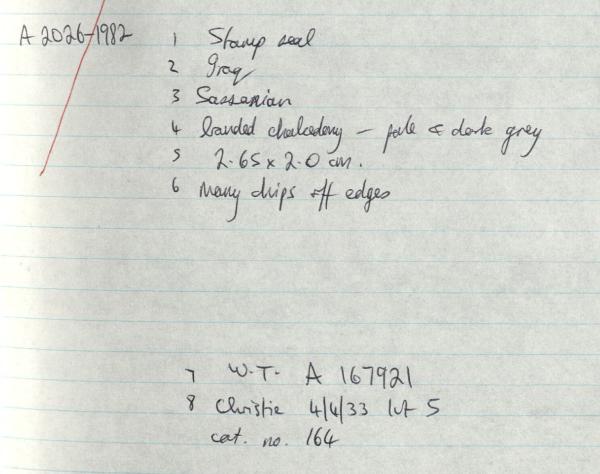 A 2026-1982 1 Stamp seal
2 Iraq
3 Sassanian
4 banded chalcedony – pale & dark grey
5 2.65 x 2.0 cm.
6 Many chips off edges
7 W.T. A 167921
8 Christie 4/4/33 lot 5
cat. no. 164